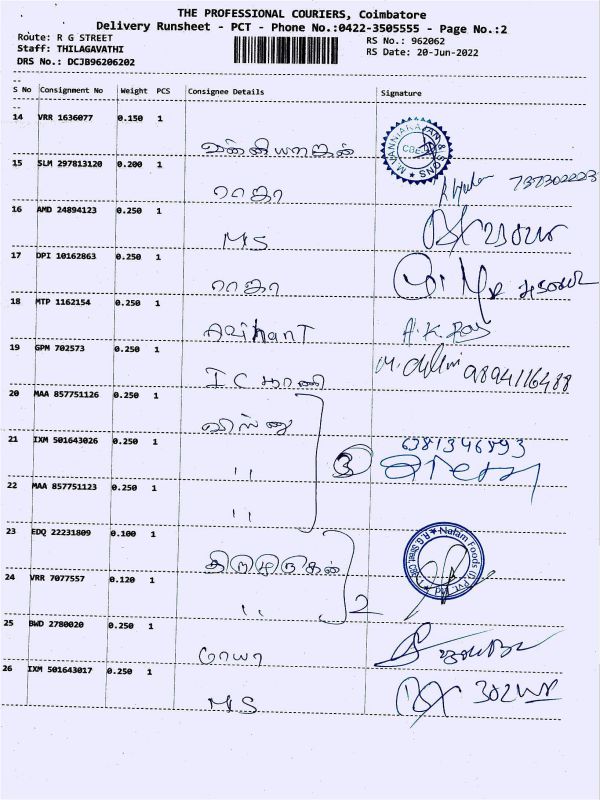 THE PROFESSIONAL COURIERS, Coimbatore
Delivery Runsheet - PCT - Phone No.:0422-3505555 - Page No.:2
Route: R G STREET
RS No.: 962062
Staff: THILAGAVATHI
RS Date: 20-Jun-2022
DRS No.: DCJB96206202
S No Consignment No Weight PCS Consignee Details Signature
14 VRR 1636077 0.150 1
15 SLM 297813120 0.200 1
ராஜா
16 AMD 24894123 0.250 1
MS
17 DPI 10162863 0.250 1
ராஜா
18 MTP 1162154 0.250 1
Arihant
19 GPM 702573 0.250 1
9894116488
20 MAA 857751126 0.250 1
6381346893
21 IXM 501643026 0.250 1
" 3
22 MAA 857751123 0.250 1
"
23 EDQ 22231809 0.100 1
திருமுருகன்
24 VRR 7077557 0.120 1
" 2
25 BWD 2780020 0.250 1
26 IXM 501643017 0.250 1
MS